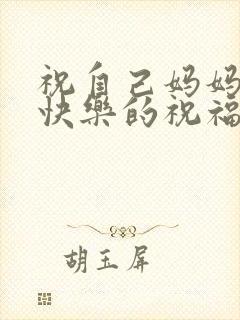 祝自己妈妈
快樂的祝福
胡玉屏